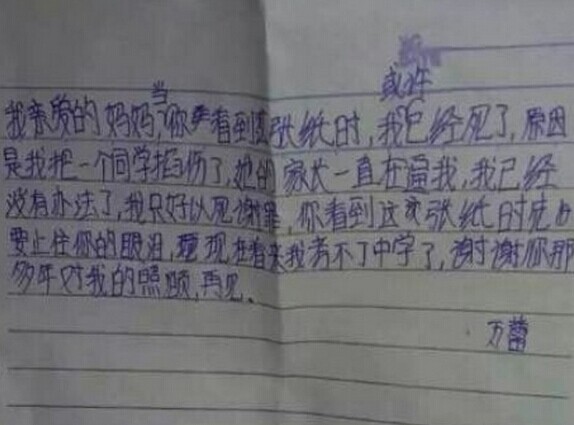 当 或许
我亲爱的妈妈,你看到这张纸时,我已经死了,原因
是我把一个同学抓伤了,她的家长一直在逼我,我已经
没有办法了,我只好以死谢罪,你看到这张纸时克必
要止住你的眼泪,现在看来我考不了中学了,谢谢你那
多年对我的照顾,再见。
万蕾